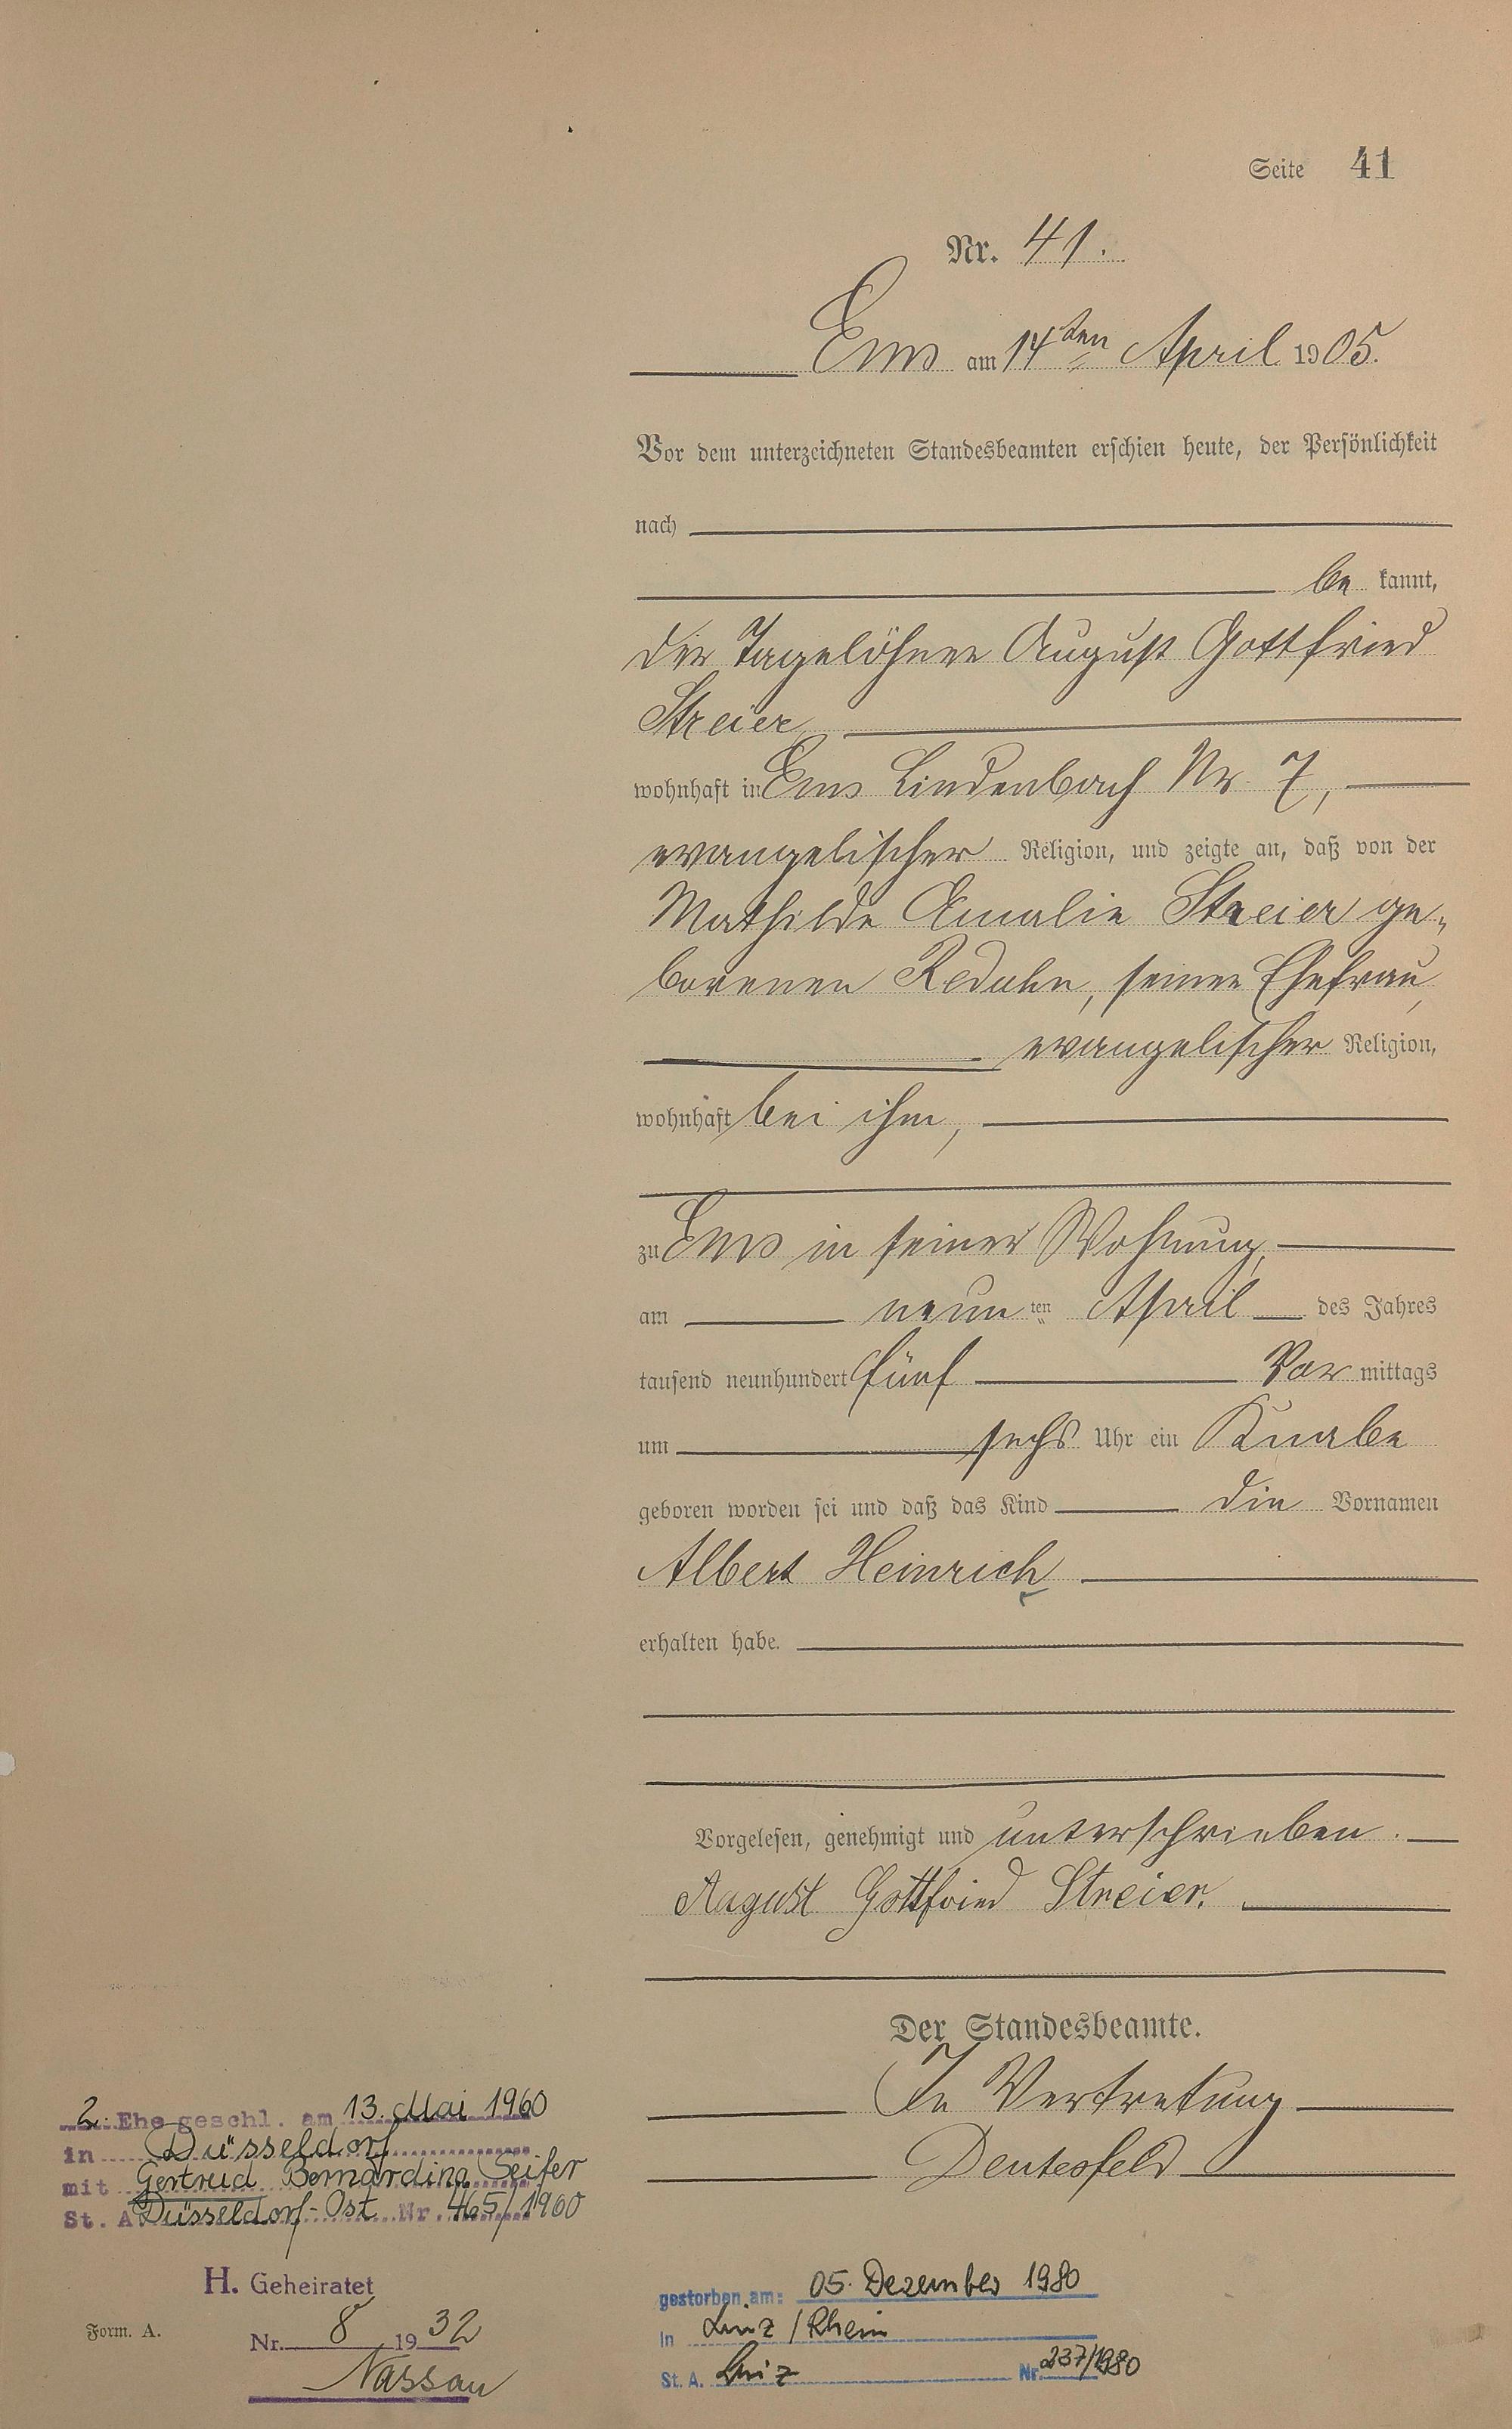 Seite 41
Nr. 41.
Ems am 14ten April 1905.
Vor dem unterzeichneten Standesbeamten erschien heute, der Persönlichkeit
nach
be kannt,
der Tagelöhner August Gottfried
Streier
wohnhaft in Ems Lindenbach Nr. 7,
evangelischer Religion, und zeigte an, daß von der
Mathilde Amalie Streier ge-
borenen Reduhn, seiner Ehefrau,
evangelischer Religion,
wohnhaft bei ihm,
zu Ems in seiner Wohnung,
am neun ten April des Jahres
tausend neunhundert fünf Vor mittags
um sechs Uhr ein Knabe
geboren worden sei und daß das Kind die Vornamen
Albert Heinrich
erhalten habe.
Vorgelesen, genehmigt und unterschrieben.
August Gottfried Streier.
Der Standesbeamte.
In Vertretung
Deutesfeld
2. Ehe geschl. am 13. Mai 1960
in Düsseldorf
mit Gertrud Bernardina Seifer
St. A. Düsseldorf-Ost Nr. 465/1960
H. Geheiratet
Nr. 8 1932
Nassau
Form. A.
gestorben am: 05. Dezember 1980
In Linz / Rhein
St. A. Linz Nr. 237/1980